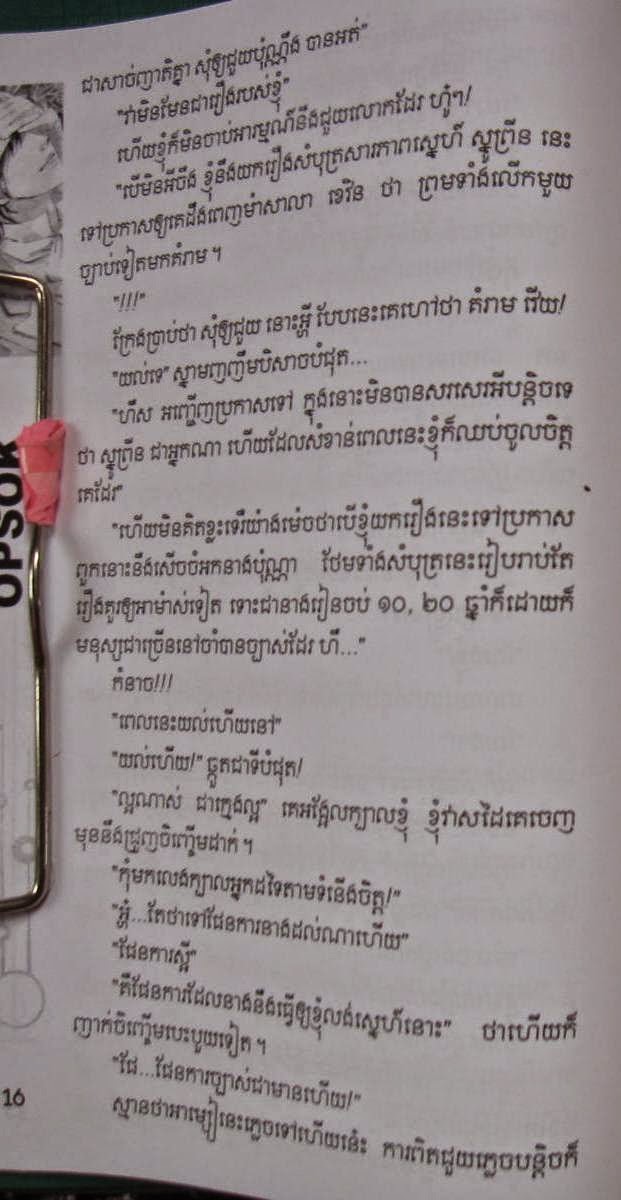 ជាសាច់ញាតិគ្នា សុំឲ្យជួយប៉ុណ្ណឹង បានអត់"
"វាមិនមែនជារឿងរបស់ខ្ញុំ"
ហើយខ្ញុំក៏មិនចាប់អារម្មណ៍នឹងជួយលោកដែរ ហ៊ូៗ!
"បើមិនអីចឹង ខ្ញុំនឹងយករឿងសំបុត្រសារភាពស្នេហ៍ ស្នូព្រីន នេះ
ទៅប្រកាសឲ្យគេដឹងពេញម៉ាសាលា ខេវិន ថា ព្រមទាំងលើកមួយ
ច្បាប់ទៀតមកគំរាម ។
"!!!"
ក្រែងប្រាប់ថា សុំឲ្យជួយ នោះអ្ហី បែបនេះគេហៅថា គំរាម វើយ!
"យល់ទេ" ស្នាមញញឹមបិសាចបំផុត...
"ហឹស អញ្ចើញប្រកាសទៅ ក្នុងនោះមិនបានសរសេរអីបន្តិចទេ
ថា ស្នូព្រីន ជាអ្នកណា ហើយដែលសំខាន់ពេលនេះខ្ញុំក៏ឈប់ចូលចិត្ត
គេដែរ"
"ហើយមិនគិតខ្លះទេរឺយ៉ាងម៉េចថាបើខ្ញុំយករឿងនេះទៅប្រកាស
ពួកនោះនឹងសើចចំអកនាងប៉ុណ្ណា ថែមទាំងសំបុត្រនេះរៀបរាប់តែ
រឿងគួរឲ្យអាម៉ាស់ទៀត ទោះជានាងរៀនចប់ ១០, ២០ ឆ្នាំក៏ដោយក៏
មនុស្សជាច្រើននៅចាំបានច្បាស់ដែរ ហឺ..."
កំនាច!!!
"ពេលនេះយល់ហើយនៅ"
"យល់ហើយ!" ឆ្កួតជាទីបំផុត!
"ល្អណាស់ ជាក្មេងល្អ" គេអង្អែលក្បាលខ្ញុំ ខ្ញុំវាសដៃគេចេញ
មុននឹងជ្រួញចិញ្ចើមដាក់ ។
"កុំមកលេងក្បាលអ្នកដទៃតាមទំនើងចិត្ត!"
"អ្ហឺ...តែថាទៅផែនការនាងដល់ណាហើយ"
"ផែនការស្អី"
"គឺផែនការដែលនាងនឹងធ្វើឲ្យខ្ញុំលង់ស្នេហ៍នោះ" ថាហើយក៏
ញាក់ចិញ្ចើមបេះបួយទៀត ។
"ផែ...ផែនការច្បាស់ជាមានហើយ!"
ស្មានថាអាម្សៀនេះភ្លេចទៅហើយនេ៎ះ ការពិតជួយភ្លេចបន្តិចក៏
16
OPSOR